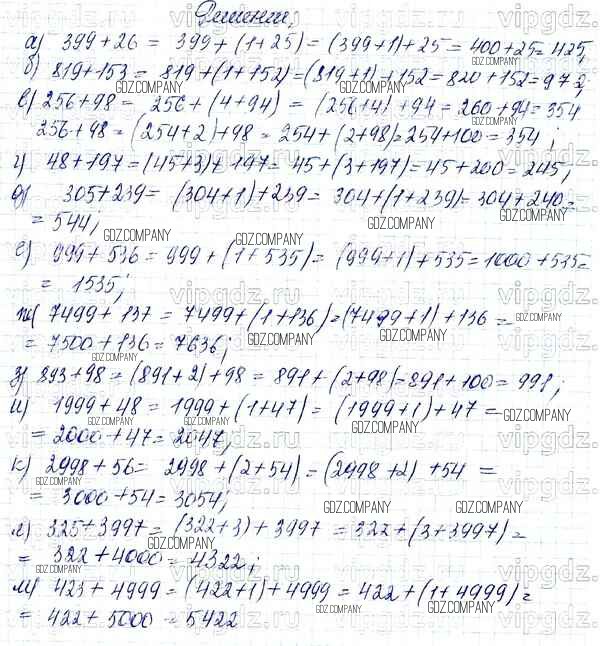 Решение;
а) 399+26 = 399+(1+25)=(399+1)+25=400+25=425,
б) 819+153= 819+(1+152)=(819+1)+152=820+152=972
в) 256+98= 256+(4+94) = (256+4)+94=260+94=354
256+98=(254+2)+98=254+(2+98)=254+100=354;
г) 48+197=(45+3)+197=45+(3+197)=45+200=245;
д) 305+239= (304+1)+239= 304+(1+239)=304+240=
=544;
е) 999+536=999+(1+535)= (999+1)+535=1000+535=
= 1535;
ж) 7499+137 = 7499+(1+136)=(7499+1)+136=
=7500+136=7636;
з) 893+98=(891+2)+98=891+(2+98)=891+100=991;
и) 1999+48=1999+(1+47)= (1999+1)+47=
=2000+47=2047;
к) 2998+56= 2998+(2+54)=(2998+2)+54 =
= 3000+54=3054;
л) 325+3997=(322+3)+3997 =322+(3+3997)=
= 322+4000=4322;
м) 423+4999=(422+1)+4999=422+(1+4999)=
=422+5000=5422